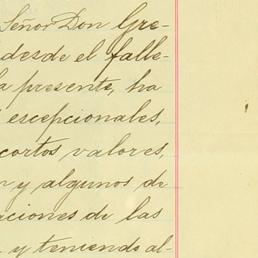 Señor Don Gre-
desde el falle-
a presente, ha
escepcionales,
cortos valores,
y algunos de
aciones de las
y teniendo al-